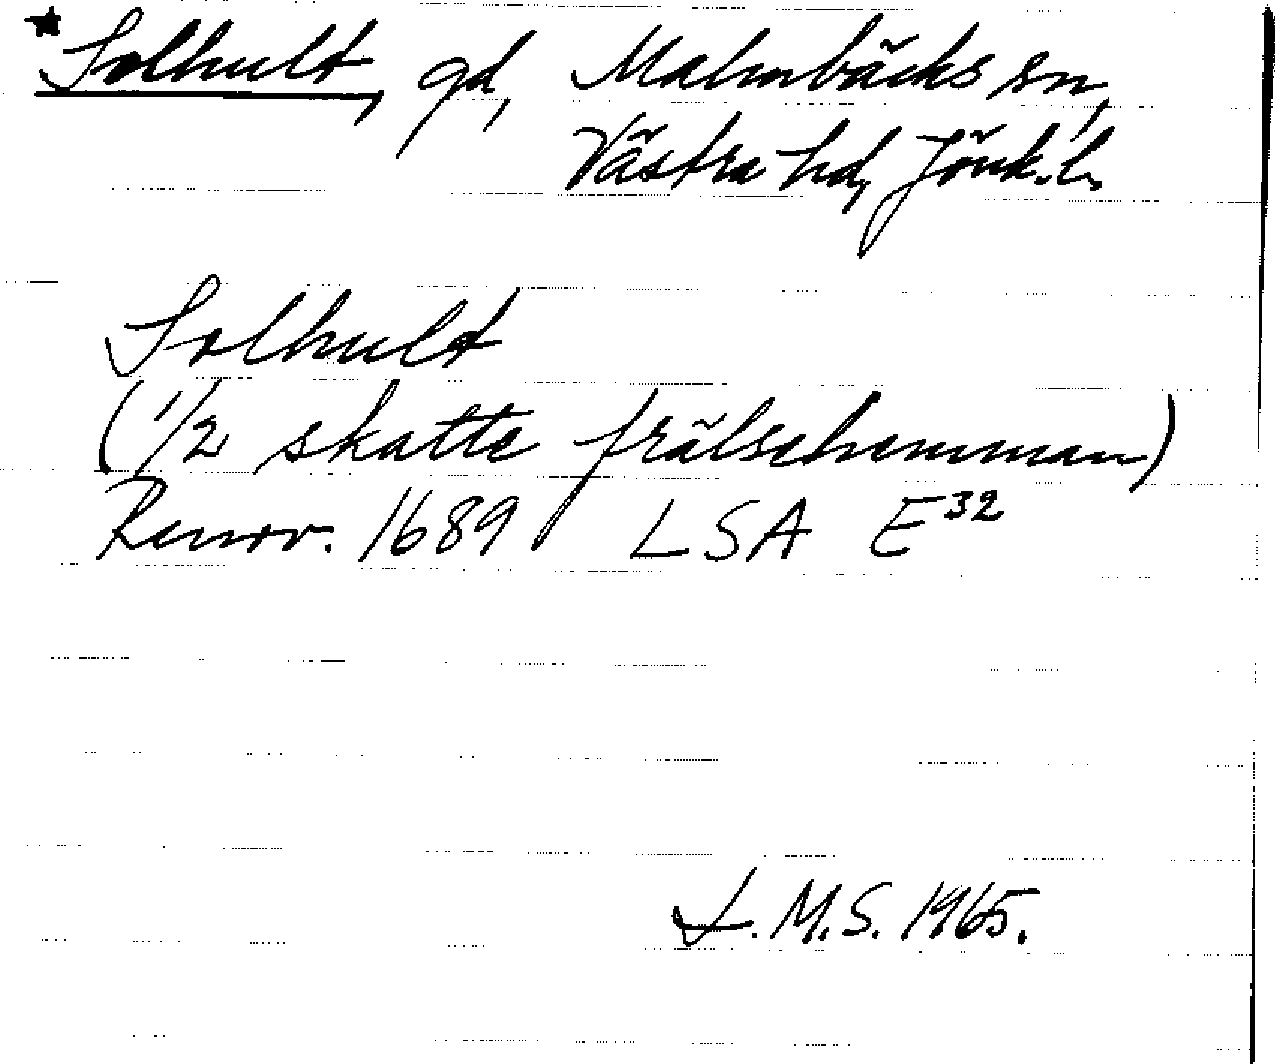 *Solhult, gd, Malmbäcks sn,
Västra hd, Jönk. l.
Solhult
(1/2 skatte frälsehemman)
Renov. 1689 LSA E32
L.M.S. 1965.